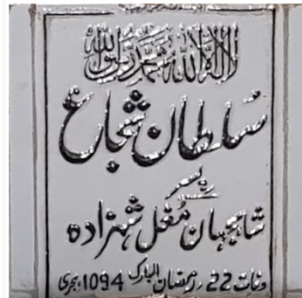 لا إله إلا الله محمد رسول الله
سلطان شجاع
پسر
شاہجہان مغل شہزادہ
وفات 22 رمضان المبارک 1094 ہجری